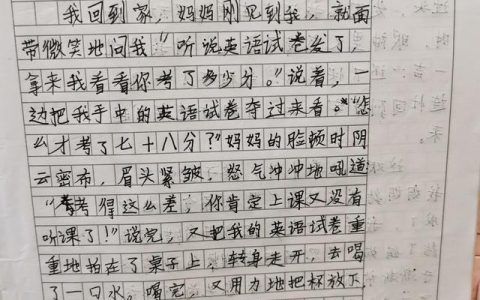 我回到家，妈妈刚见到我，就面
带微笑地问我“听说英语试卷发了，
拿来我看看你考了多少分。”说着，一
边把我手中的英语试卷夺过来看。“怎
么才考了七十八分？”妈妈的脸顿时阴
云密布，眉头紧皱，怒气冲冲地吼道
“考得这么差，你肯定上课又没有
听课了！”说完，又把我的英语试卷重
重地拍在了桌子上，转身走开，去喝
了一口水。喝完，又用力地把杯放下